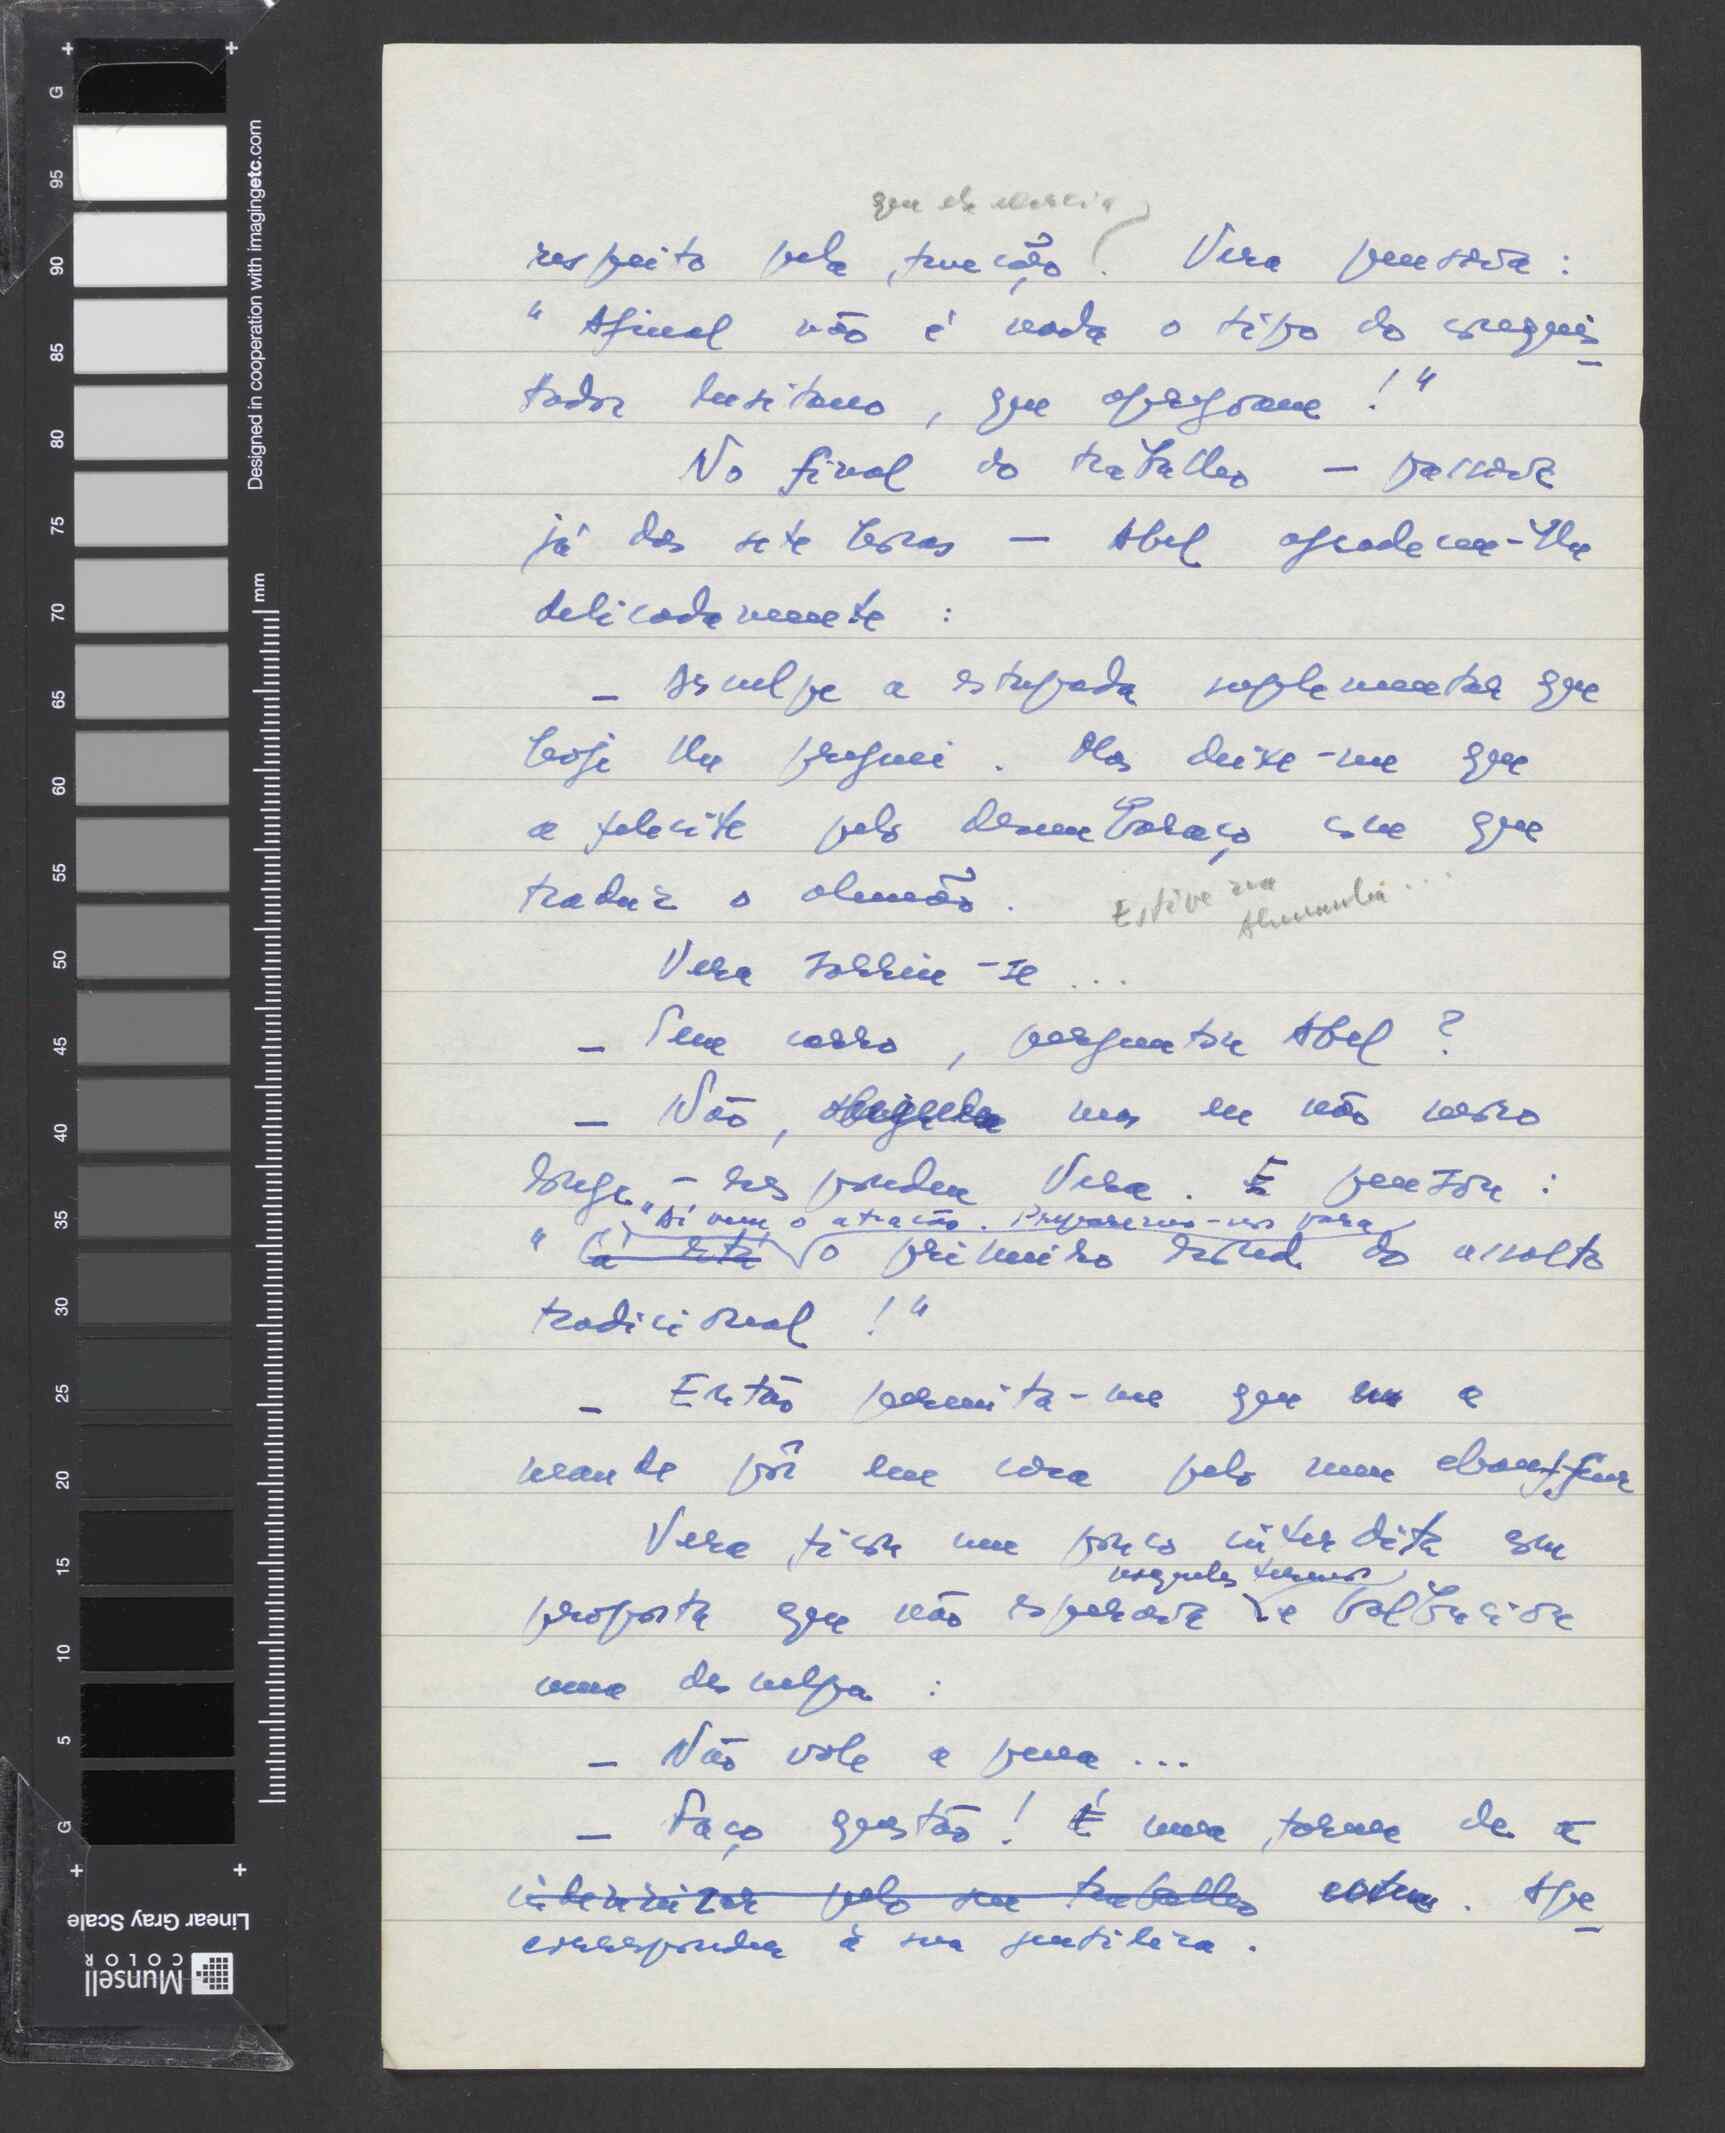 que ela exercia
respeito pela função. Vera pensava:
"Afinal não é nada o tipo do conquis
tador lusitano, que apregoam!"
No final do trabalho — passava
já das sete horas — Abel agradeceu-lhe
delicadamente:
— Desculpe a estopada suplementar que
hoje lhe preguei. Mas deixe-me que
a felicite pelo desembaraço com que
traduz o alemão.
Estive na
Alemanha...
Vera sorriu-se...
— Tem carro, perguntou Abel?
— Não, obrigada mas eu não moro
longe — respondeu Vera. E pensou:
"Aí vem o atracão. Preparemo-nos para
"Cá está o primeiro round do assalto
tradicional!"
— Então permita-me que a
mande pôr em casa pelo meu chauffeur
Vera ficou um pouco interdita com
naqueles termos
proposta que não esperava e balbuciou
uma desculpa:
— Não vale a pena...
— Faço questão! É uma forma de a
indemnizar pelo seu trabalho extra. Ape
corresponder à sua gentileza.
Designed in cooperation with imagingetc.com
mm
G
95
90
85
80
75
70
65
60
55
50
45
40
35
30
25
20
15
10
5
G
Linear Gray Scale
Munsell
COLOR